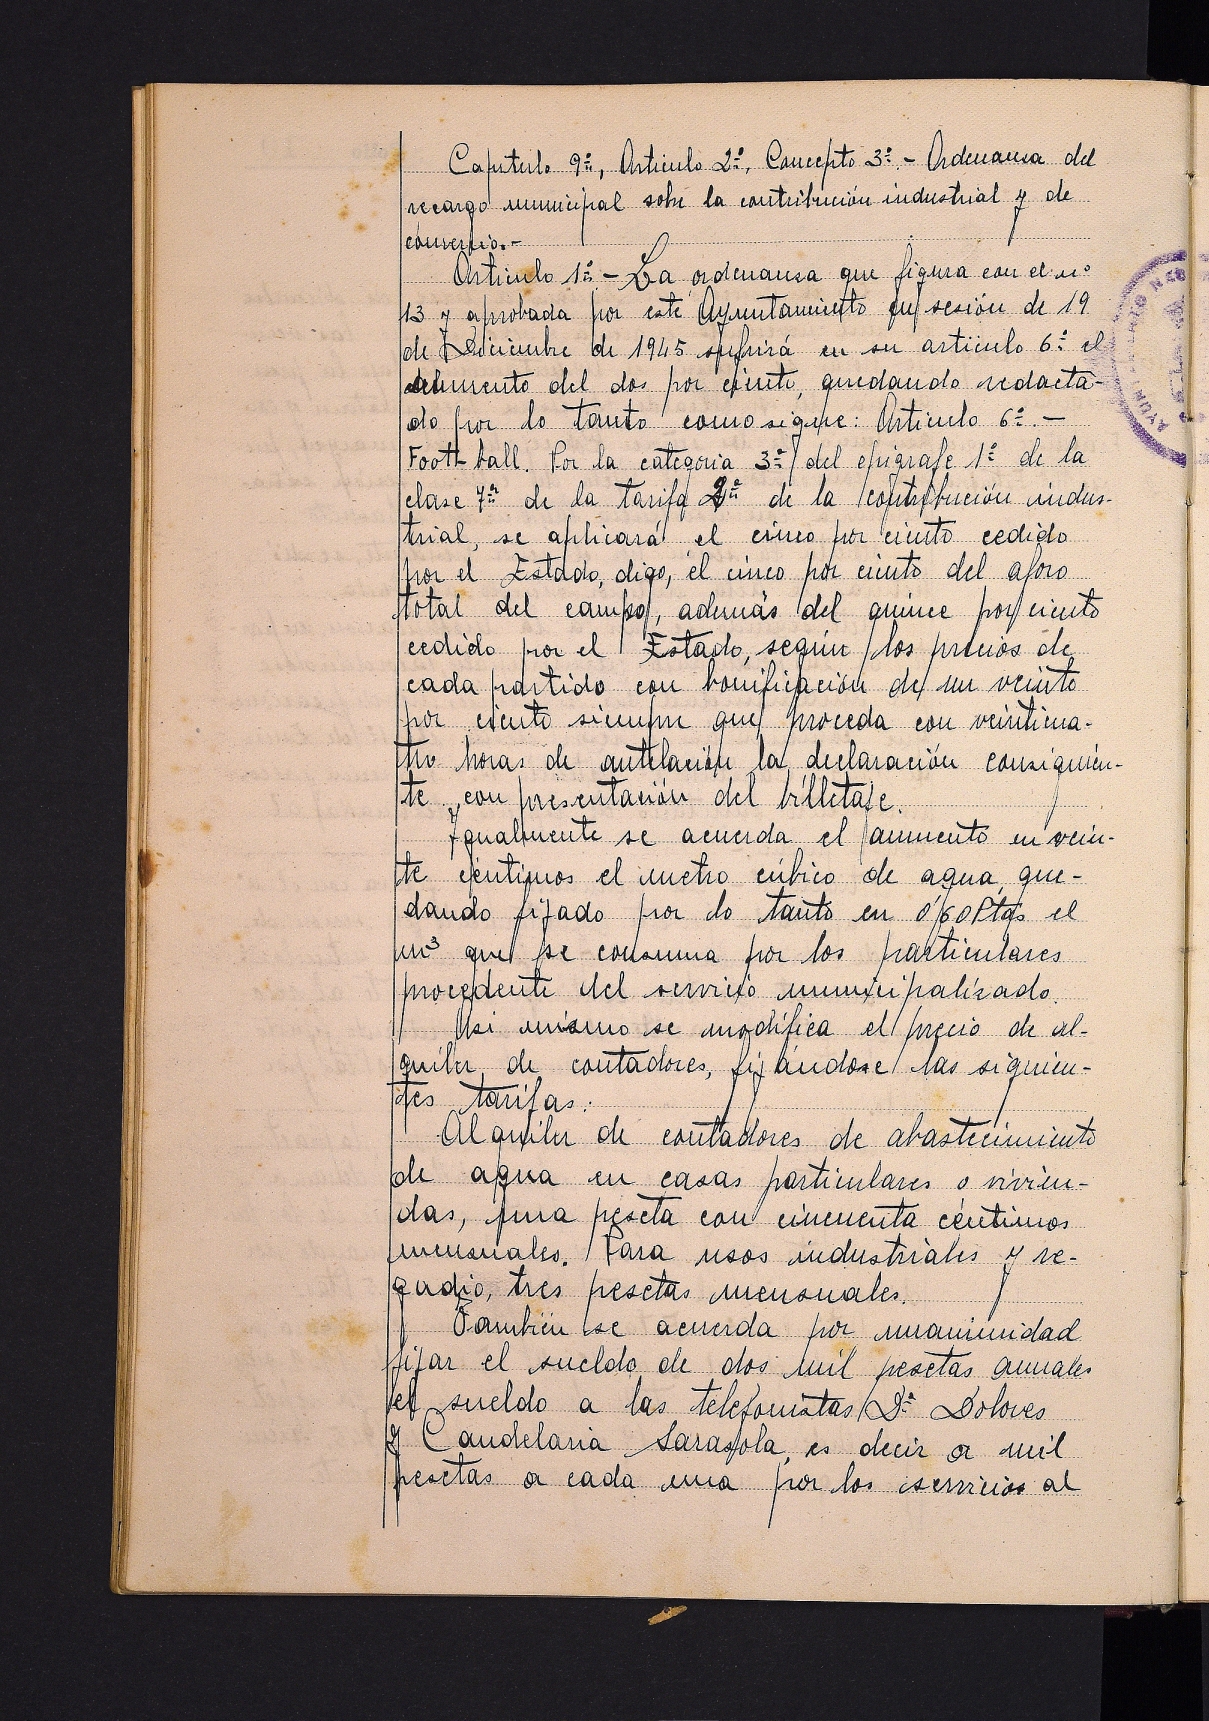 Capitulo 9º, Articulo 2º, Concepto 3º.- Ordenanza del
recargo municipal sobre la contribución industrial y de
comercio.-
Articulo 1º.- La ordenanza que figura con el nº
13 y aprobada por este Ayuntamiento en sesión de 19
de Diciembre de 1945 sufrirá en su articulo 6º el
aumento del dos por ciento, quedando redacta-
do por lo tanto como sigue: Articulo 6º.-
Foot-ball. Por la categoria 3ª del epigrafe 1º de la
clase 7ª de la tarifa 2ª de la contribución indus-
trial, se aplicará el cinco por ciento cedido
por el Estado, digo, el cinco por ciento del aforo
total del campo, además del quince por ciento
cedido por el Estado, según los precios de
cada partido con bonificación de un veinte
por ciento siempre que proceda con veinticua-
tro horas de antelación la declaración consiguien-
te, con presentación del billetaje.
Igualmente se acuerda el aumento en vein-
te céntimos el metro cúbico de agua, que-
dando fijado por lo tanto en 0'60 Ptas el
m³ que se consuma por los particulares
procedente del servicio municipalizado.
Asi mismo se modifica el precio de al-
quiler de contadores, fijándose las siguien-
tes tarifas:
Alquiler de contadores de abastecimiento
de agua en casas particulares o vivien-
das, una peseta con cincuenta céntimos
mensuales. Para usos industriales y re-
gadio, tres pesetas mensuales.
También se acuerda por unanimidad
fijar el sueldo de dos mil pesetas anuales
el sueldo a las telefonistas Dª Dolores
y Candelaria Sarasola, es decir a mil
pesetas a cada una por los servicios al